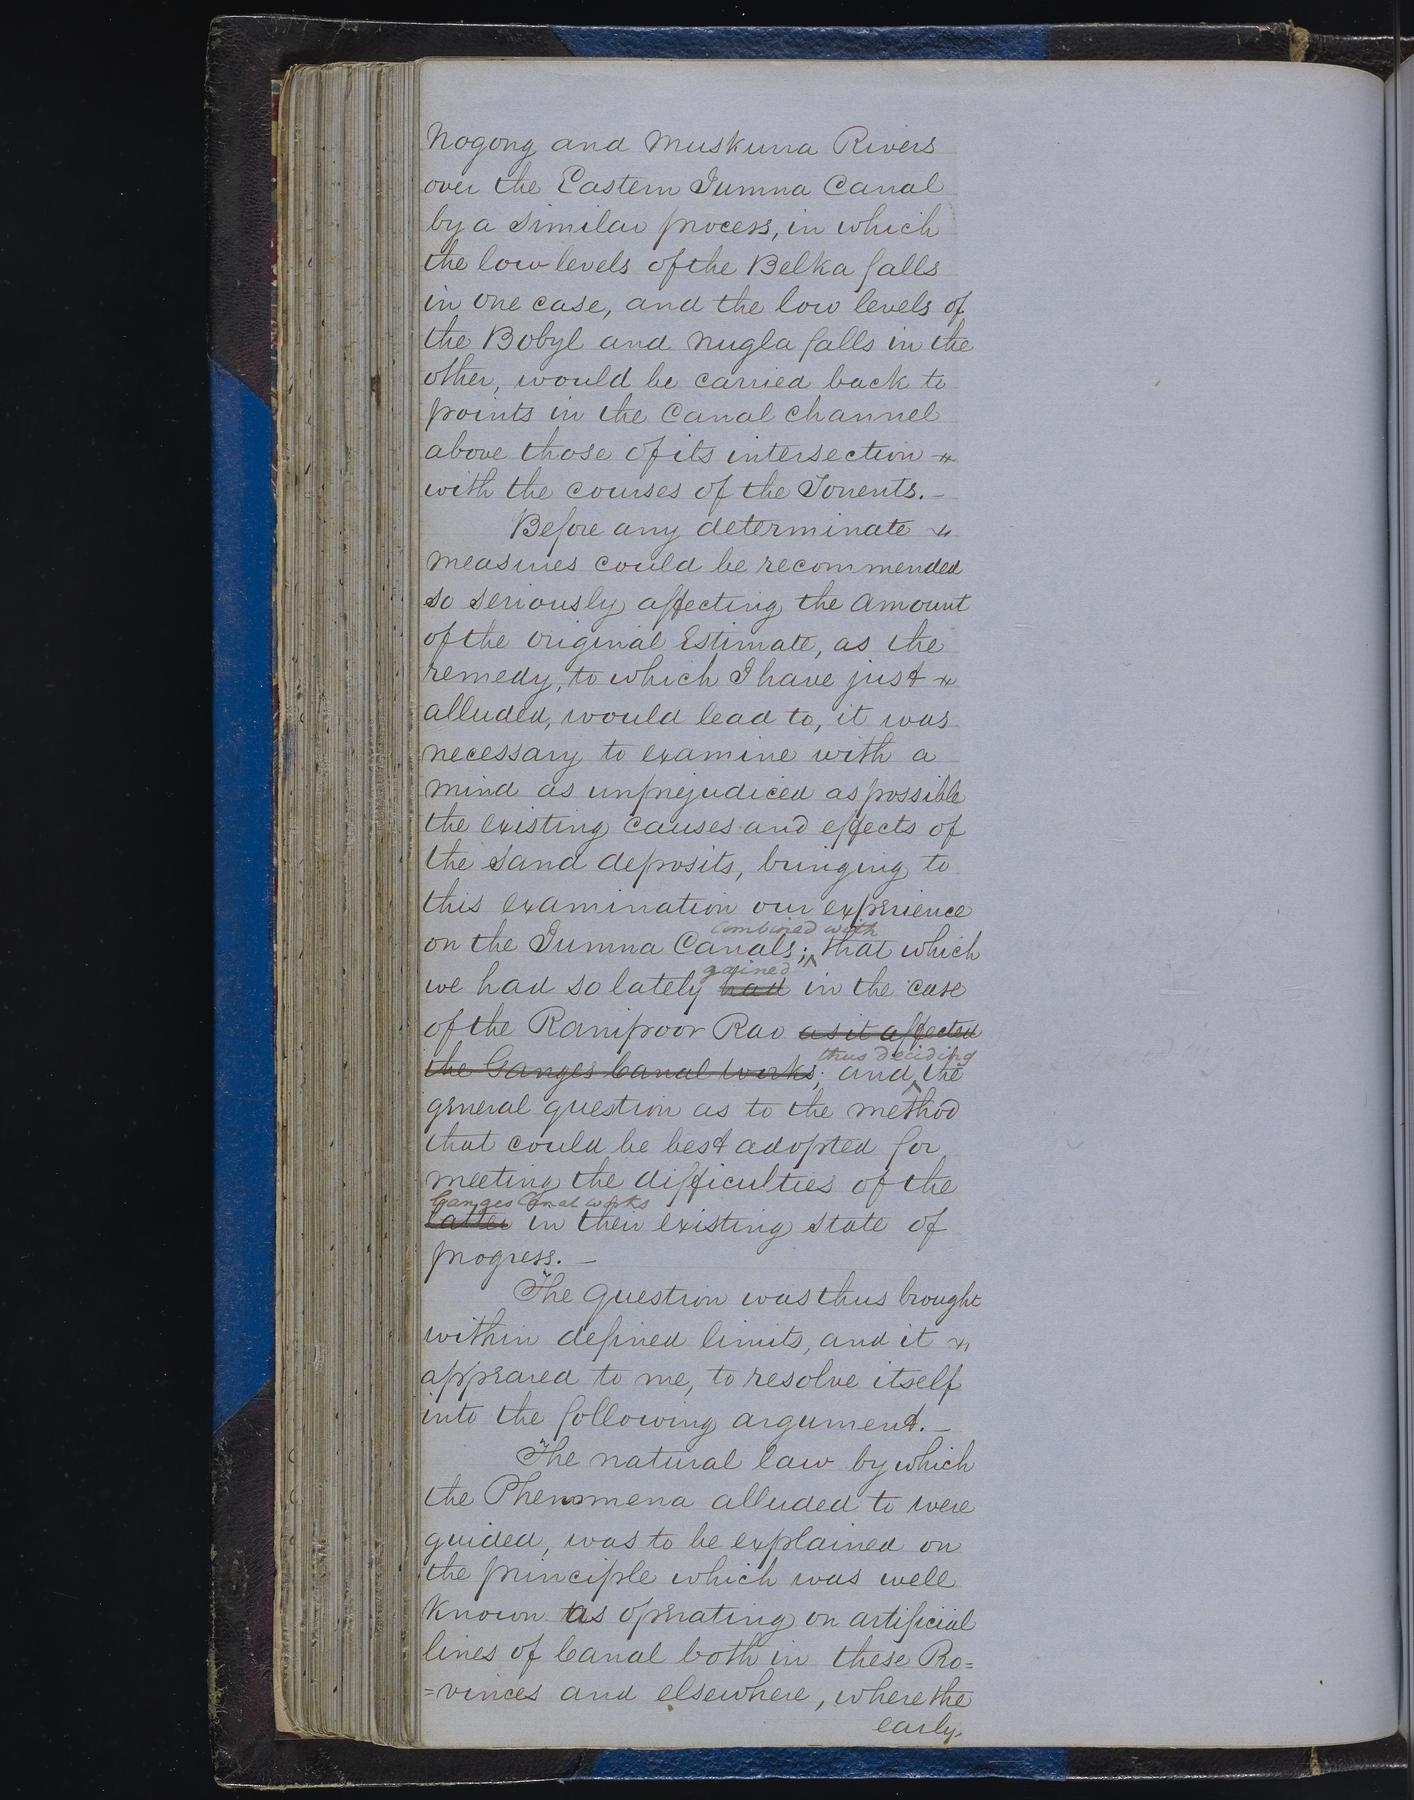 Nogong and Muskurra Rivers
over the Eastern Jumna Canal
by a similar process, in which
the low levels of the Belka falls
in one case, and the low levels of
the Bobyl and Nugla falls in the
other, would be carried back to
points in the Canal channel
above those of its intersection
with the courses of the Torrents. —
Before any determinate
measures could be recommended
so seriously affecting the amount
of the original Estimate, as the
remedy, to which I have just
alluded, would lead to, it was
necessary to examine with a
mind as unprejudiced as possible
the existing causes and effects of
the sand deposits, bringing to
this examination our experience
combined with
on the Jumna Canals; ^ that which
gained
we had so lately had in the case
of the Ranipoor Rao as it affected
thus deciding
the Ganges Canal Works; and ^ the
general question as to the method
that could be best adopted for
meeting the difficulties of the
Ganges Canal works
latter in their existing state of
progress. —
The question was thus brought
within defined limits, and it
appeared to me, to resolve itself
into the following argument. —
The natural law by which
the Phenomena alluded to were
guided, was to be explained on
the principle which was well
known as operating on artificial
lines of Canal both in these Pro=
=vinces and elsewhere, where the
early